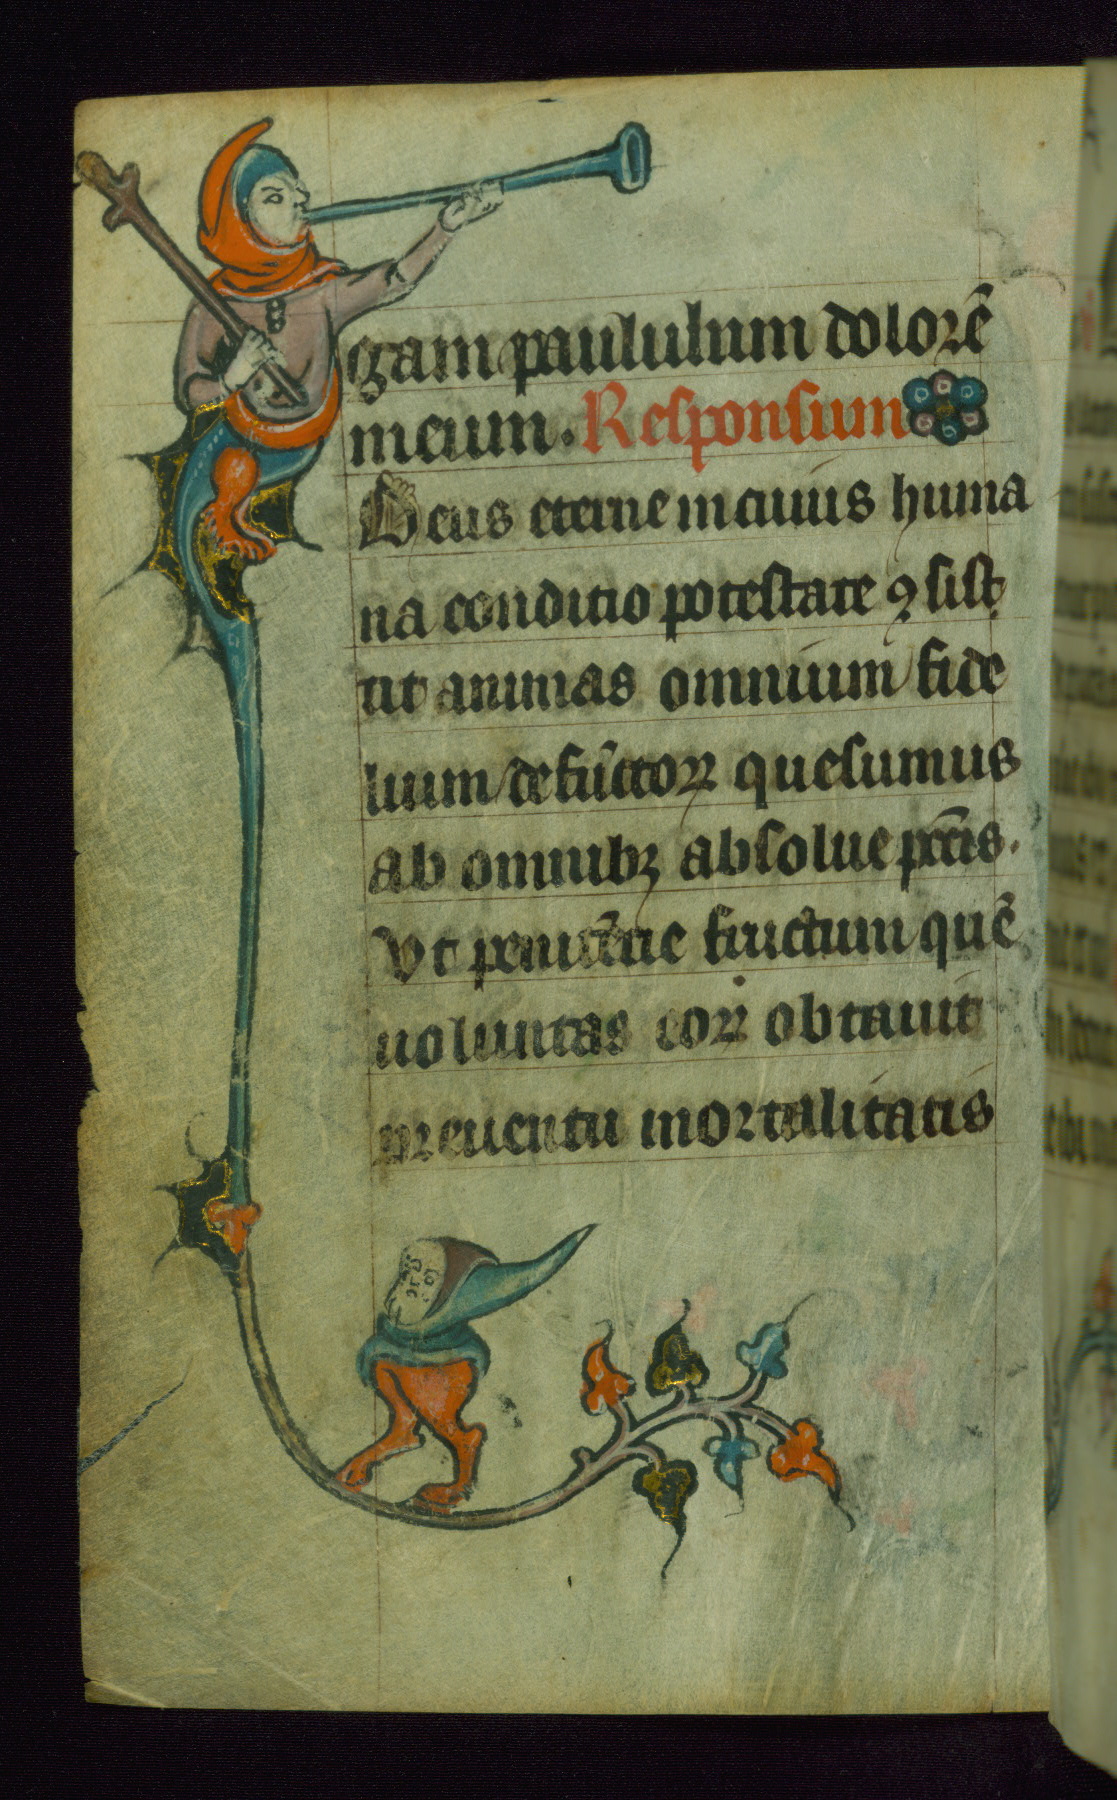 gam paululum dolorē
meum. Responsium
Deus eterne in cuius huma
na conditio potestate ꝯsist
tit animas omnium fide
lium defūctoꝝ quesumus
ab omnibꝫ absolue pccīs.
Vt penitētie fructum quē
uoluntas eoꝝ obtauit
preuentu mortalitatis